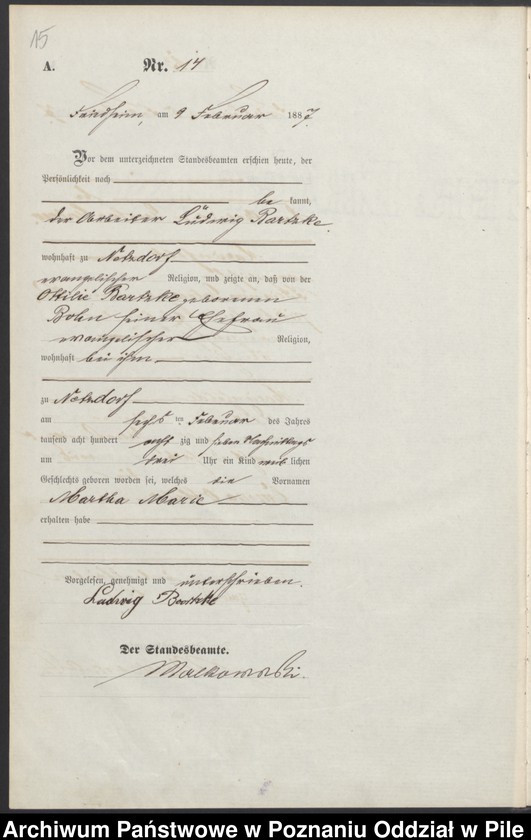 15
A.
Nr. 14
Friedheim, am 9 Februar 1887.
Vor dem unterzeichneten Standesbeamten erschien heute, der
Persönlichkeit nach
be kannt,
der Arbeiter Ludwig Bartzke
wohnhaft zu Netzdorf
evangelischer Religion, und zeigte an, daß von der
Ottilie Bartzke geborenen
Bohn seiner Ehefrau
evangelischer Religion,
wohnhaft bei ihm
zu Netzdorf
am sechsten Februar des Jahres
tausend acht hundert acht zig und sieben Nachmittags
um drei Uhr ein Kind weib lichen
Geschlechts geboren worden sei, welches die Vornamen
Martha Marie
erhalten habe
Vorgelesen, genehmigt und unterschrieben.
Ludwig Bartzke
Der Standesbeamte.
Malkowski.
Archiwum Państwowe w Poznaniu Oddział w Pile